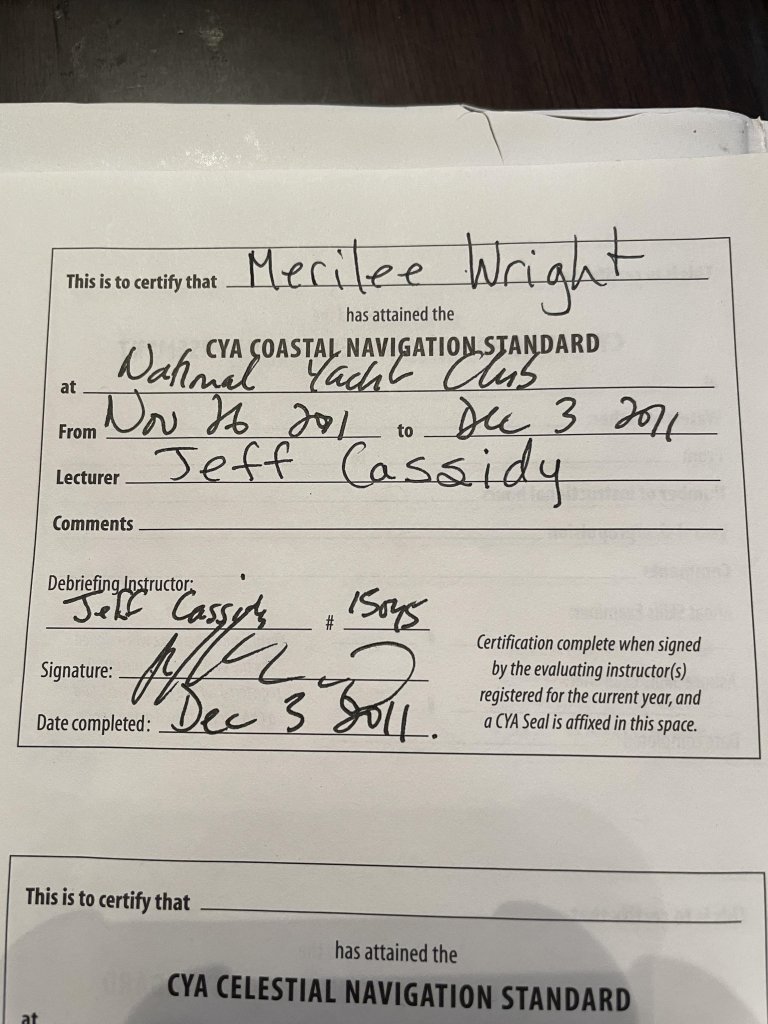 This is to certify that Merilee Wright
has attained the
CYA COASTAL NAVIGATION STANDARD
at National Yacht Club
From Nov 26 2011 to Dec 3 2011
Lecturer Jeff Cassidy
Comments
Debriefing Instructor:
Jeff Cassidy #
Signature:
Date completed: Dec 3 2011.
Certification complete when signed
by the evaluating instructor(s)
registered for the current year, and
a CYA Seal is affixed in this space.
This is to certify that
has attained the
CYA CELESTIAL NAVIGATION STANDARD
at